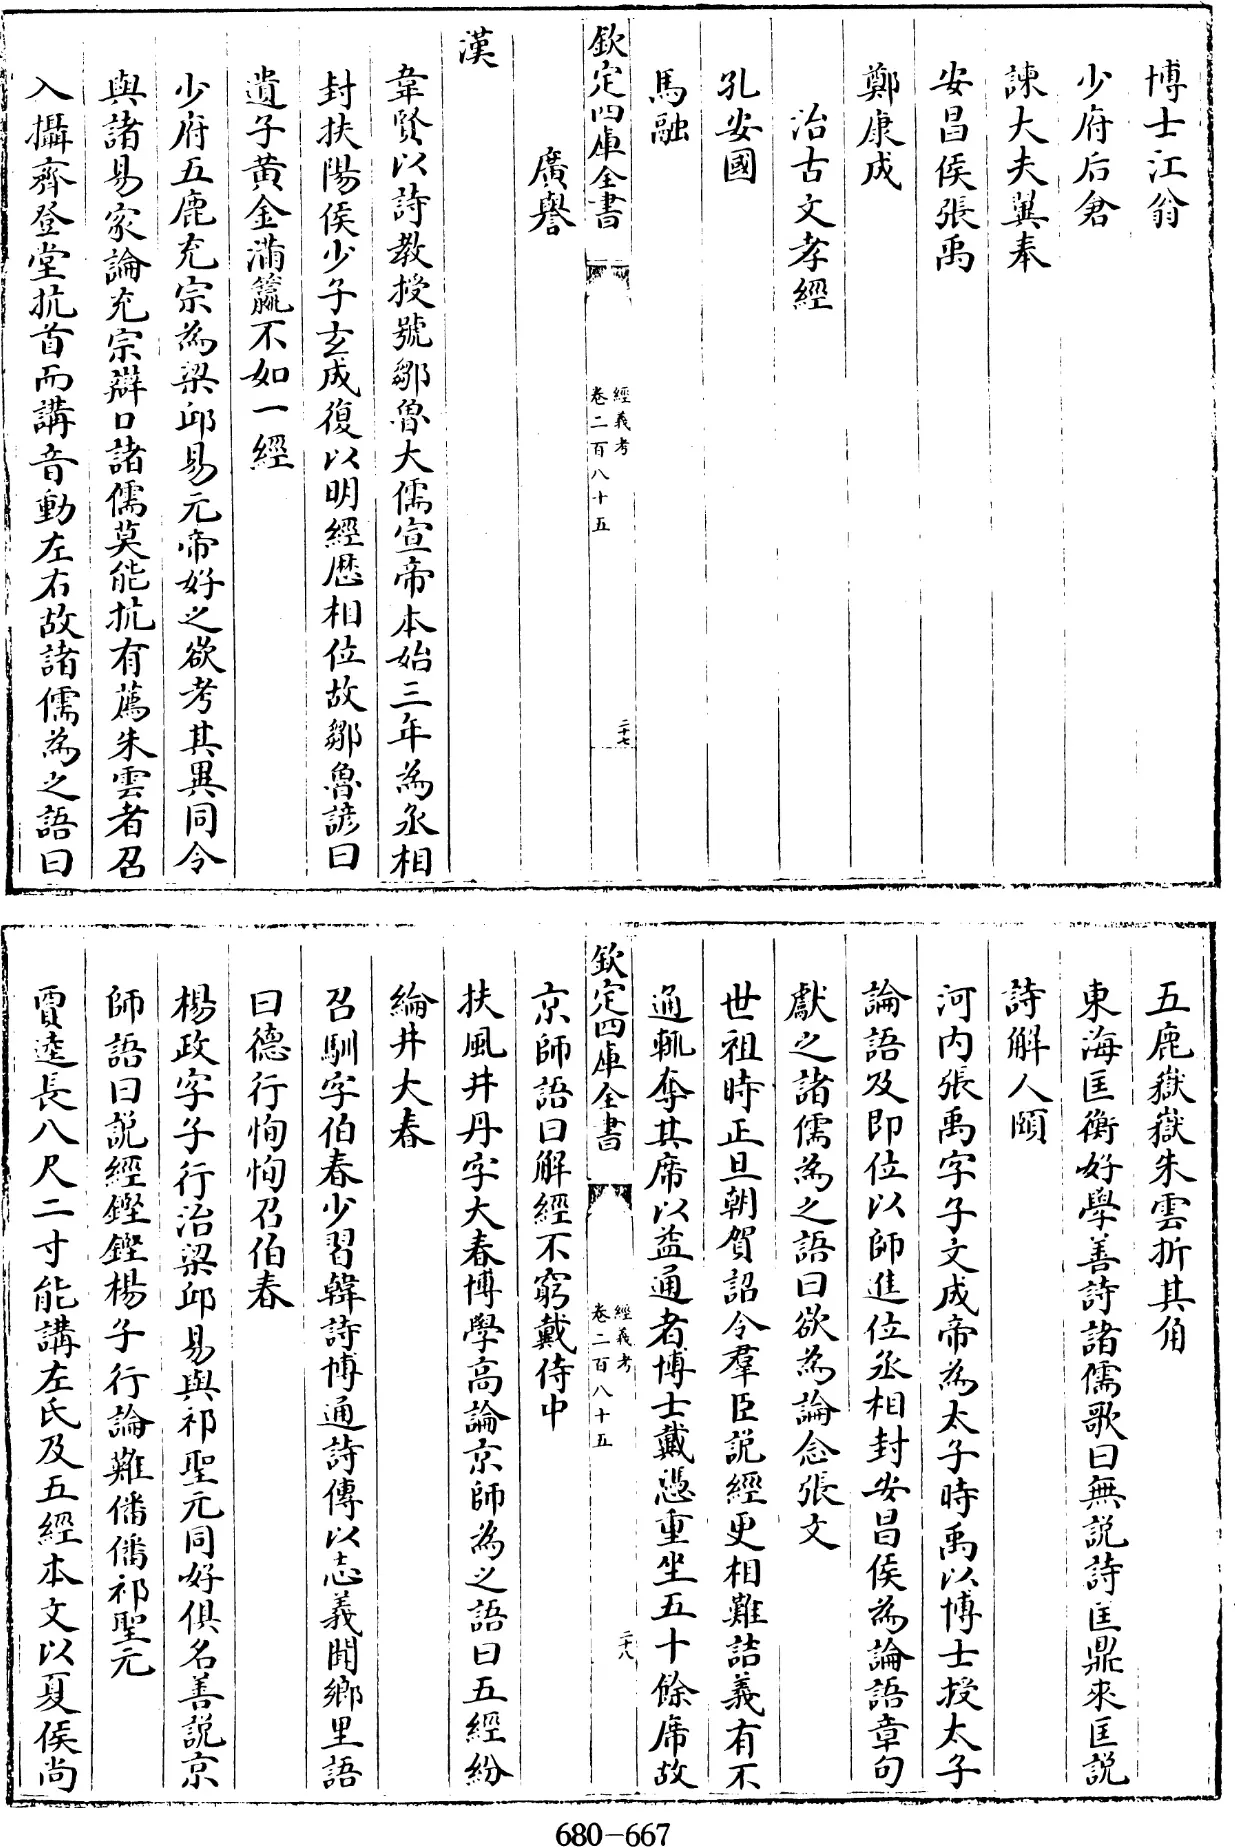 博士江翁
少府后倉
諫大夫翼奉
安昌侯張禹
鄭康成
治古文孝經
孔安國
馬融
欽定四庫全書
經義考
卷二百八十五
二十七
廣譽
漢
韋賢以詩教授號鄒魯大儒宣帝本始三年為丞相
封扶陽侯少子玄成復以明經歴相位故鄒魯諺曰
遺子黄金滿籯不如一經
少府五鹿充宗為梁邱易元帝好之欲考其異同令
與諸易家論充宗辯口諸儒莫能抗有薦朱雲者召
入攝齊登堂抗首而講音動左右故諸儒為之語曰
五鹿嶽嶽朱雲折其角
東海匡衡好學善詩諸儒歌曰無説詩匡鼎來匡説
詩解人頤
河内張禹字子文成帝為太子時禹以博士授太子
論語及即位以師進位丞相封安昌侯為論語章句
獻之諸儒為之語曰欲為論念張文
世祖時正旦朝賀詔令羣臣説經更相難詰義有不
通輒奪其席以益通者博士戴憑重坐五十餘席故
欽定四庫全書
經義考
卷二百八十五
二十八
京師語曰解經不窮戴侍中
扶風井丹字大春博學高論京師為之語曰五經紛
綸井大春
召馴字伯春少習韓詩博通詩傳以志義聞鄉里語
曰德行恂恂召伯春
楊政字子行治梁邱易與祁聖元同好俱名善説京
師語曰説經鏗鏗楊子行論難僠僠祁聖元
賈逵長八尺二寸能講左氏及五經本文以夏侯尚
680-667